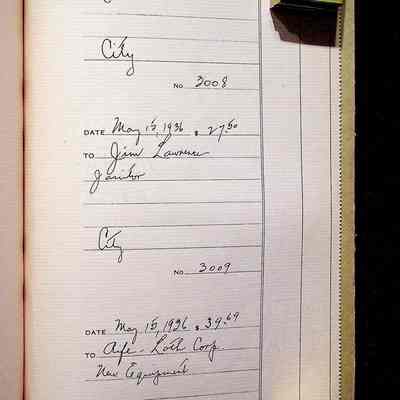 City
No 3008
DATE May 15, 1936 $ 27.50
TO Jim Lawrence
Janitor
City
No 3009
DATE May 15, 1936 $ 39.69
TO Aife - Loth Corp.
New Equipment